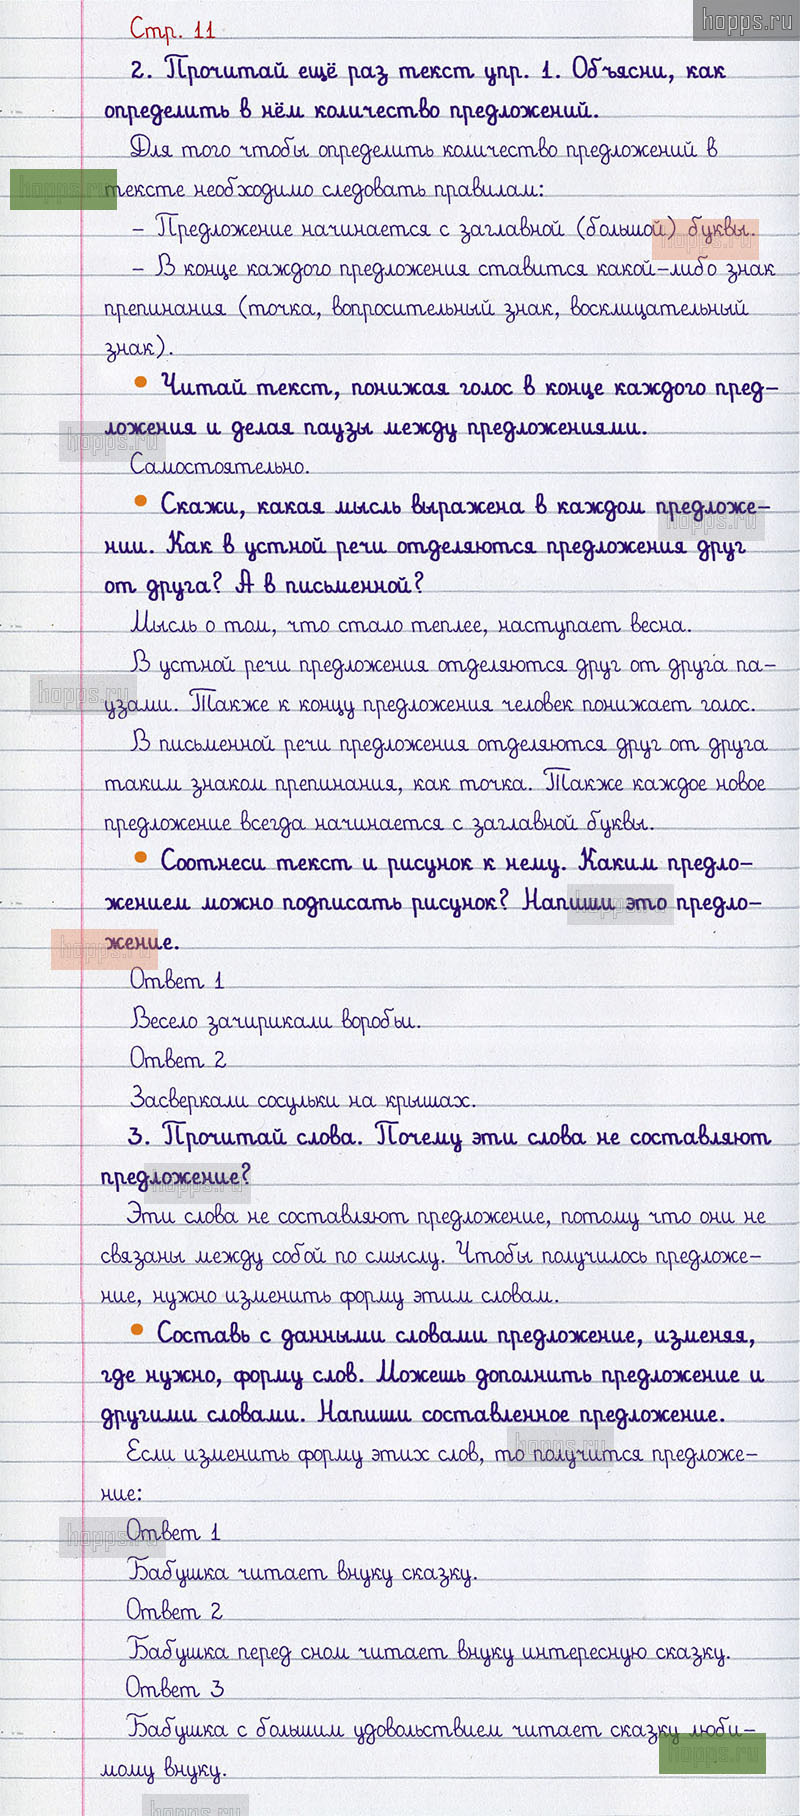 hopps.ru
Стр. 11
2. Прочитай ещё раз текст упр. 1. Объясни, как
определить в нём количество предложений.
Для того чтобы определить количество предложений в
hopps.ru
тексте необходимо следовать правилам:
– Предложение начинается с заглавной (большой) буквы.
hopps.ru
– В конце каждого предложения ставится какой-либо знак
препинания (точка, вопросительный знак, восклицательный
знак).
• Читай текст, понижая голос в конце каждого пред-
ложения и делая паузы между предложениями.
hopps.ru
Самостоятельно.
• Скажи, какая мысль выражена в каждом предложе-
hopps.ru
нии. Как в устной речи отделяются предложения друг
от друга? А в письменной?
Мысль о том, что стало теплее, наступает весна.
В устной речи предложения отделяются друг от друга па-
hopps.ru
узами. Также к концу предложения человек понижает голос.
В письменной речи предложения отделяются друг от друга
таким знаком препинания, как точка. Также каждое новое
предложение всегда начинается с заглавной буквы.
• Соотнеси текст и рисунок к нему. Каким предло-
жением можно подписать рисунок? Напиши это предло-
hopps.ru
жение.
hopps.ru
Ответ 1
Весело зачирикали воробьи.
Ответ 2
Засверкали сосульки на крышах.
3. Прочитай слова. Почему эти слова не составляют
предложение?
hopps.ru
Эти слова не составляют предложение, потому что они не
связаны между собой по смыслу. Чтобы получилось предложе-
ние, нужно изменить форму этим словам.
• Составь с данными словами предложение, изменяя,
где нужно, форму слов. Можешь дополнить предложение и
другими словами. Напиши составленное предложение.
Если изменить форму этих слов, то получится предложе-
hopps.ru
ние:
Ответ 1
hopps.ru
Бабушка читает внуку сказку.
Ответ 2
Бабушка перед сном читает внуку интересную сказку.
Ответ 3
Бабушка с большим удовольствием читает сказку люби-
hopps.ru
мому внуку.
hopps.ru